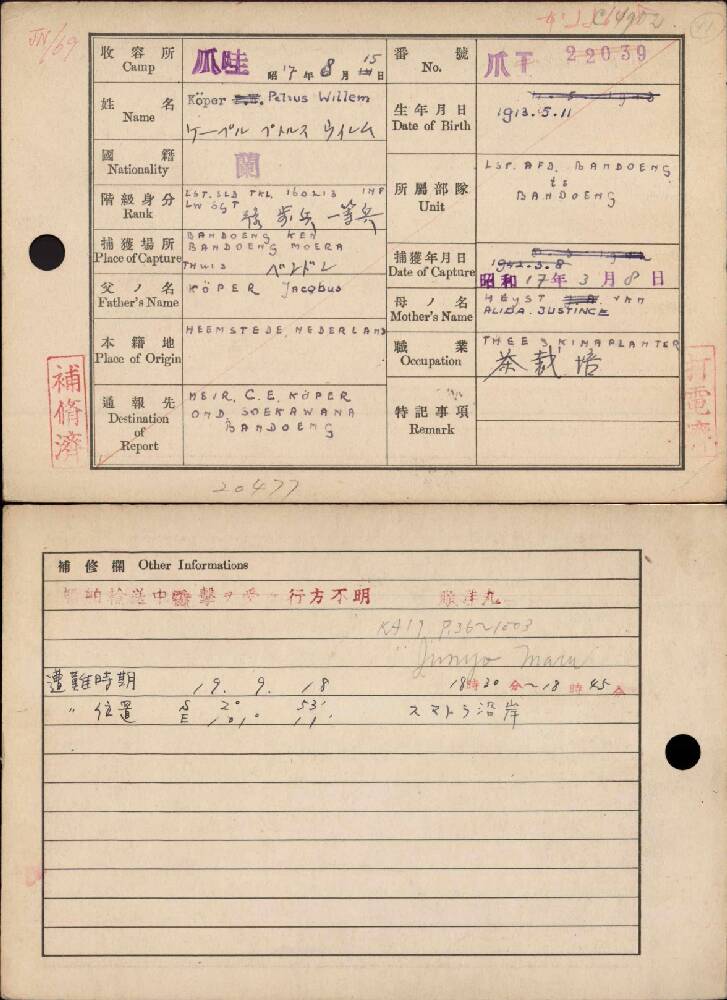 C14902
JN/69
收容所
Camp
爪哇
昭17年8月15日
番號
No.
爪Ⅱ 22039
姓名
Name
Köper Petrus Willem
ケーペル ペトルス ウイレム
生年月日
Date of Birth
1913.5.11
國籍
Nationality
蘭
階級身分
Rank
LST. SLD TKL. 160213 INF
LW SGT
歩兵 一等兵
所屬部隊
Unit
LST. AFD. BANDOENG
ts
BANDOENG
捕獲場所
Place of Capture
BANDOENG KEN
BANDOENG MOERA
THWIS
バンドン
捕獲年月日
Date of Capture
1942.3.8
昭和17年3月8日
父ノ名
Father's Name
KÖPER Jacobus
母ノ名
Mother's Name
HEYST VAN
ALIDA. JUSTINCE
本籍地
Place of Origin
HEEMSTEDE, NEDERLAND
職業
Occupation
THEE & KINAPLANTER
茶栽培
通報先
Destination
of
Report
MEVR. C. E. KÖPER
OND. SOEKAWANA
BANDOENG
特記事項
Remark
補脩濟
20477
補修欄 Other Informations
船舶輸送中襲擊ヲ受ケ行方不明 順洋丸
KA17 P.36~1003
Junyo Maru
遭難時期 19. 9. 18 18時30分~18時45分
〃 位置 S 2° 53′ スマトラ沿岸
E 101° 11′